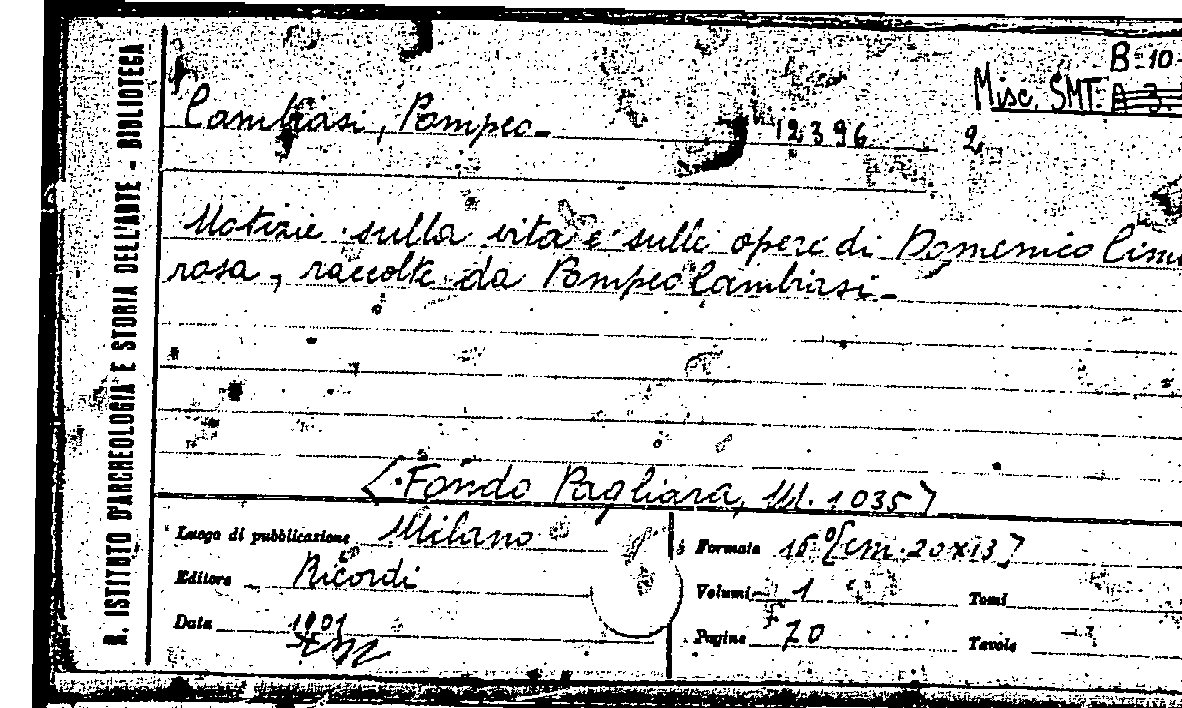 R. ISTITUTO D'ARCHEOLOGIA E STORIA DELL'ARTE - BIBLIOTECA
B-10-
Misc. SMT. A 3.
Cambiasi, Pompeo-
12396
2
Notizie sulla vita e sulle opere di Domenico Cima
rosa, raccolte da Pompeo Cambiasi.-
<Fondo Pagliara, M. 1035>
Luogo di pubblicazione Milano
Formato 16º [cm. 20x13]
Editore Ricordi
Volumi 1
Tomi
Data 1901
Pagine 70
Tavole